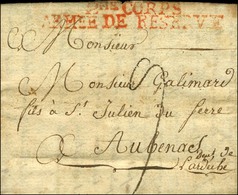 CORPS
ARMÉE DE RÉSERVE
Monsieur
Monsieur Galimard
fils à St Julien du serre
Aubenas
Lardeche